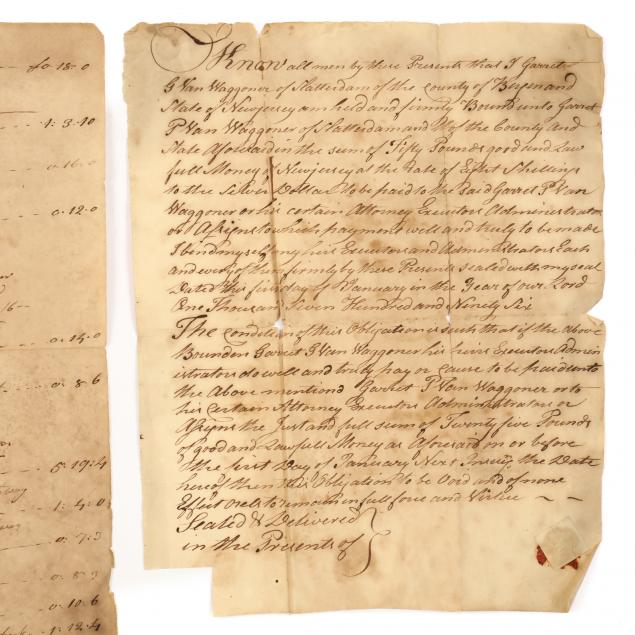 fo 18-0
1: 3-10
0-16-0
0-12-0
16-
0-14-0
0: 8-6
5-19:4
1: 4:0
0: 7:3
0-10-6
1:12:4
Know all men by these Presents that I Garret
G Van Waggoner of Slatterdam of the County of Bergen and
State of Newjersey am held and firmly Bound unto Garret
P Van Waggoner of Slatterdam and of the County And
State Aforesaid in the sum of Fifty Pounds good and Law
full Money of Newjersey at the Rate of Eight Shillings
to the Silver Dollar to be paid to the said Garret P Van
Waggoner or his certain Attorney Executors Administrators
or Assigns to which payment well and truly to be made
I bind myself my heirs Executors and Administrators Each
and every of them firmly by these Presents sealed with my seal
Dated this first day of January in the Year of our Lord
One Thousand Seven Hundred and Ninety Six
The condition of this Obligation is such that if the above
Bounden Garret G Van Waggoner his heirs Executors Admin
istrators do well and truly pay or cause to be paid unto
the Above mentiond Garret P Van Waggoner or to
his Certain Attorney Executors Administrators or
Assigns the Just and full sum of Twenty five Pounds
of good and Lawfull Money as Aforesaid on or before
the first Day of January Next the Date
hereof then this Obligation to be Void and of none
Effect or els to remain in full force and Virtue
Sealed & Delivered
in the Presents of